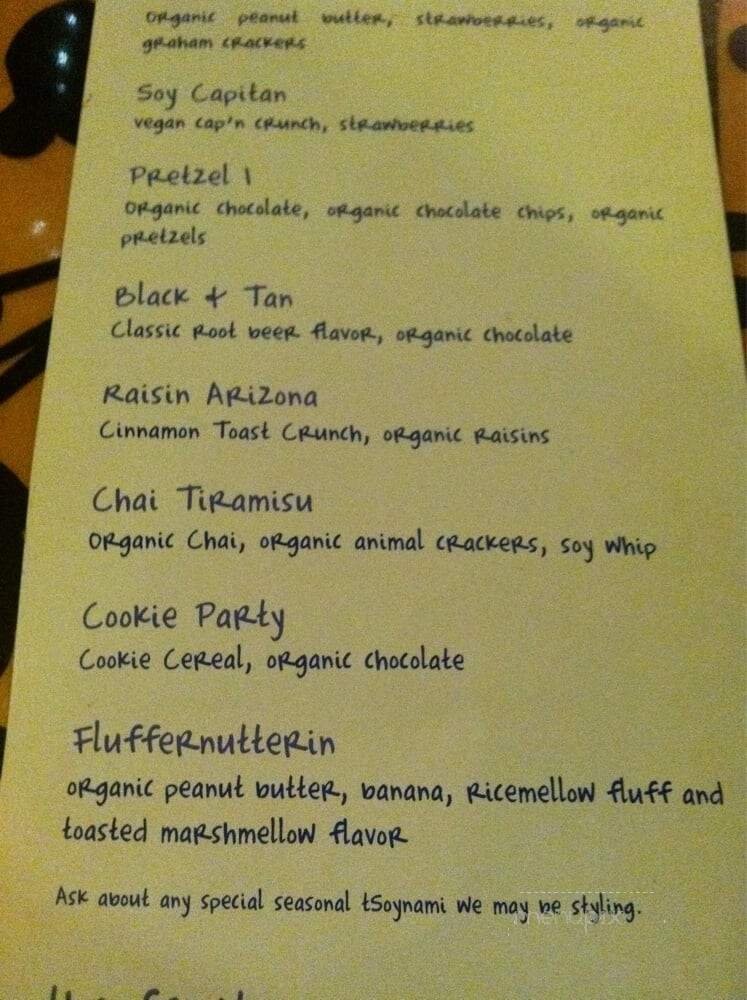 organic peanut butter, strawberries, organic
graham crackers
Soy Capitan
vegan cap'n crunch, strawberries
Pretzel 1
organic chocolate, organic chocolate chips, organic
pretzels
Black + Tan
Classic Root beer flavor, organic chocolate
Raisin Arizona
Cinnamon Toast Crunch, organic raisins
Chai Tiramisu
Organic Chai, organic animal crackers, soy whip
Cookie Party
Cookie Cereal, organic chocolate
Fluffernutterin
organic peanut butter, banana, Ricemellow fluff and
toasted marshmellow flavor
Ask about any special seasonal tSoynami we may be styling.